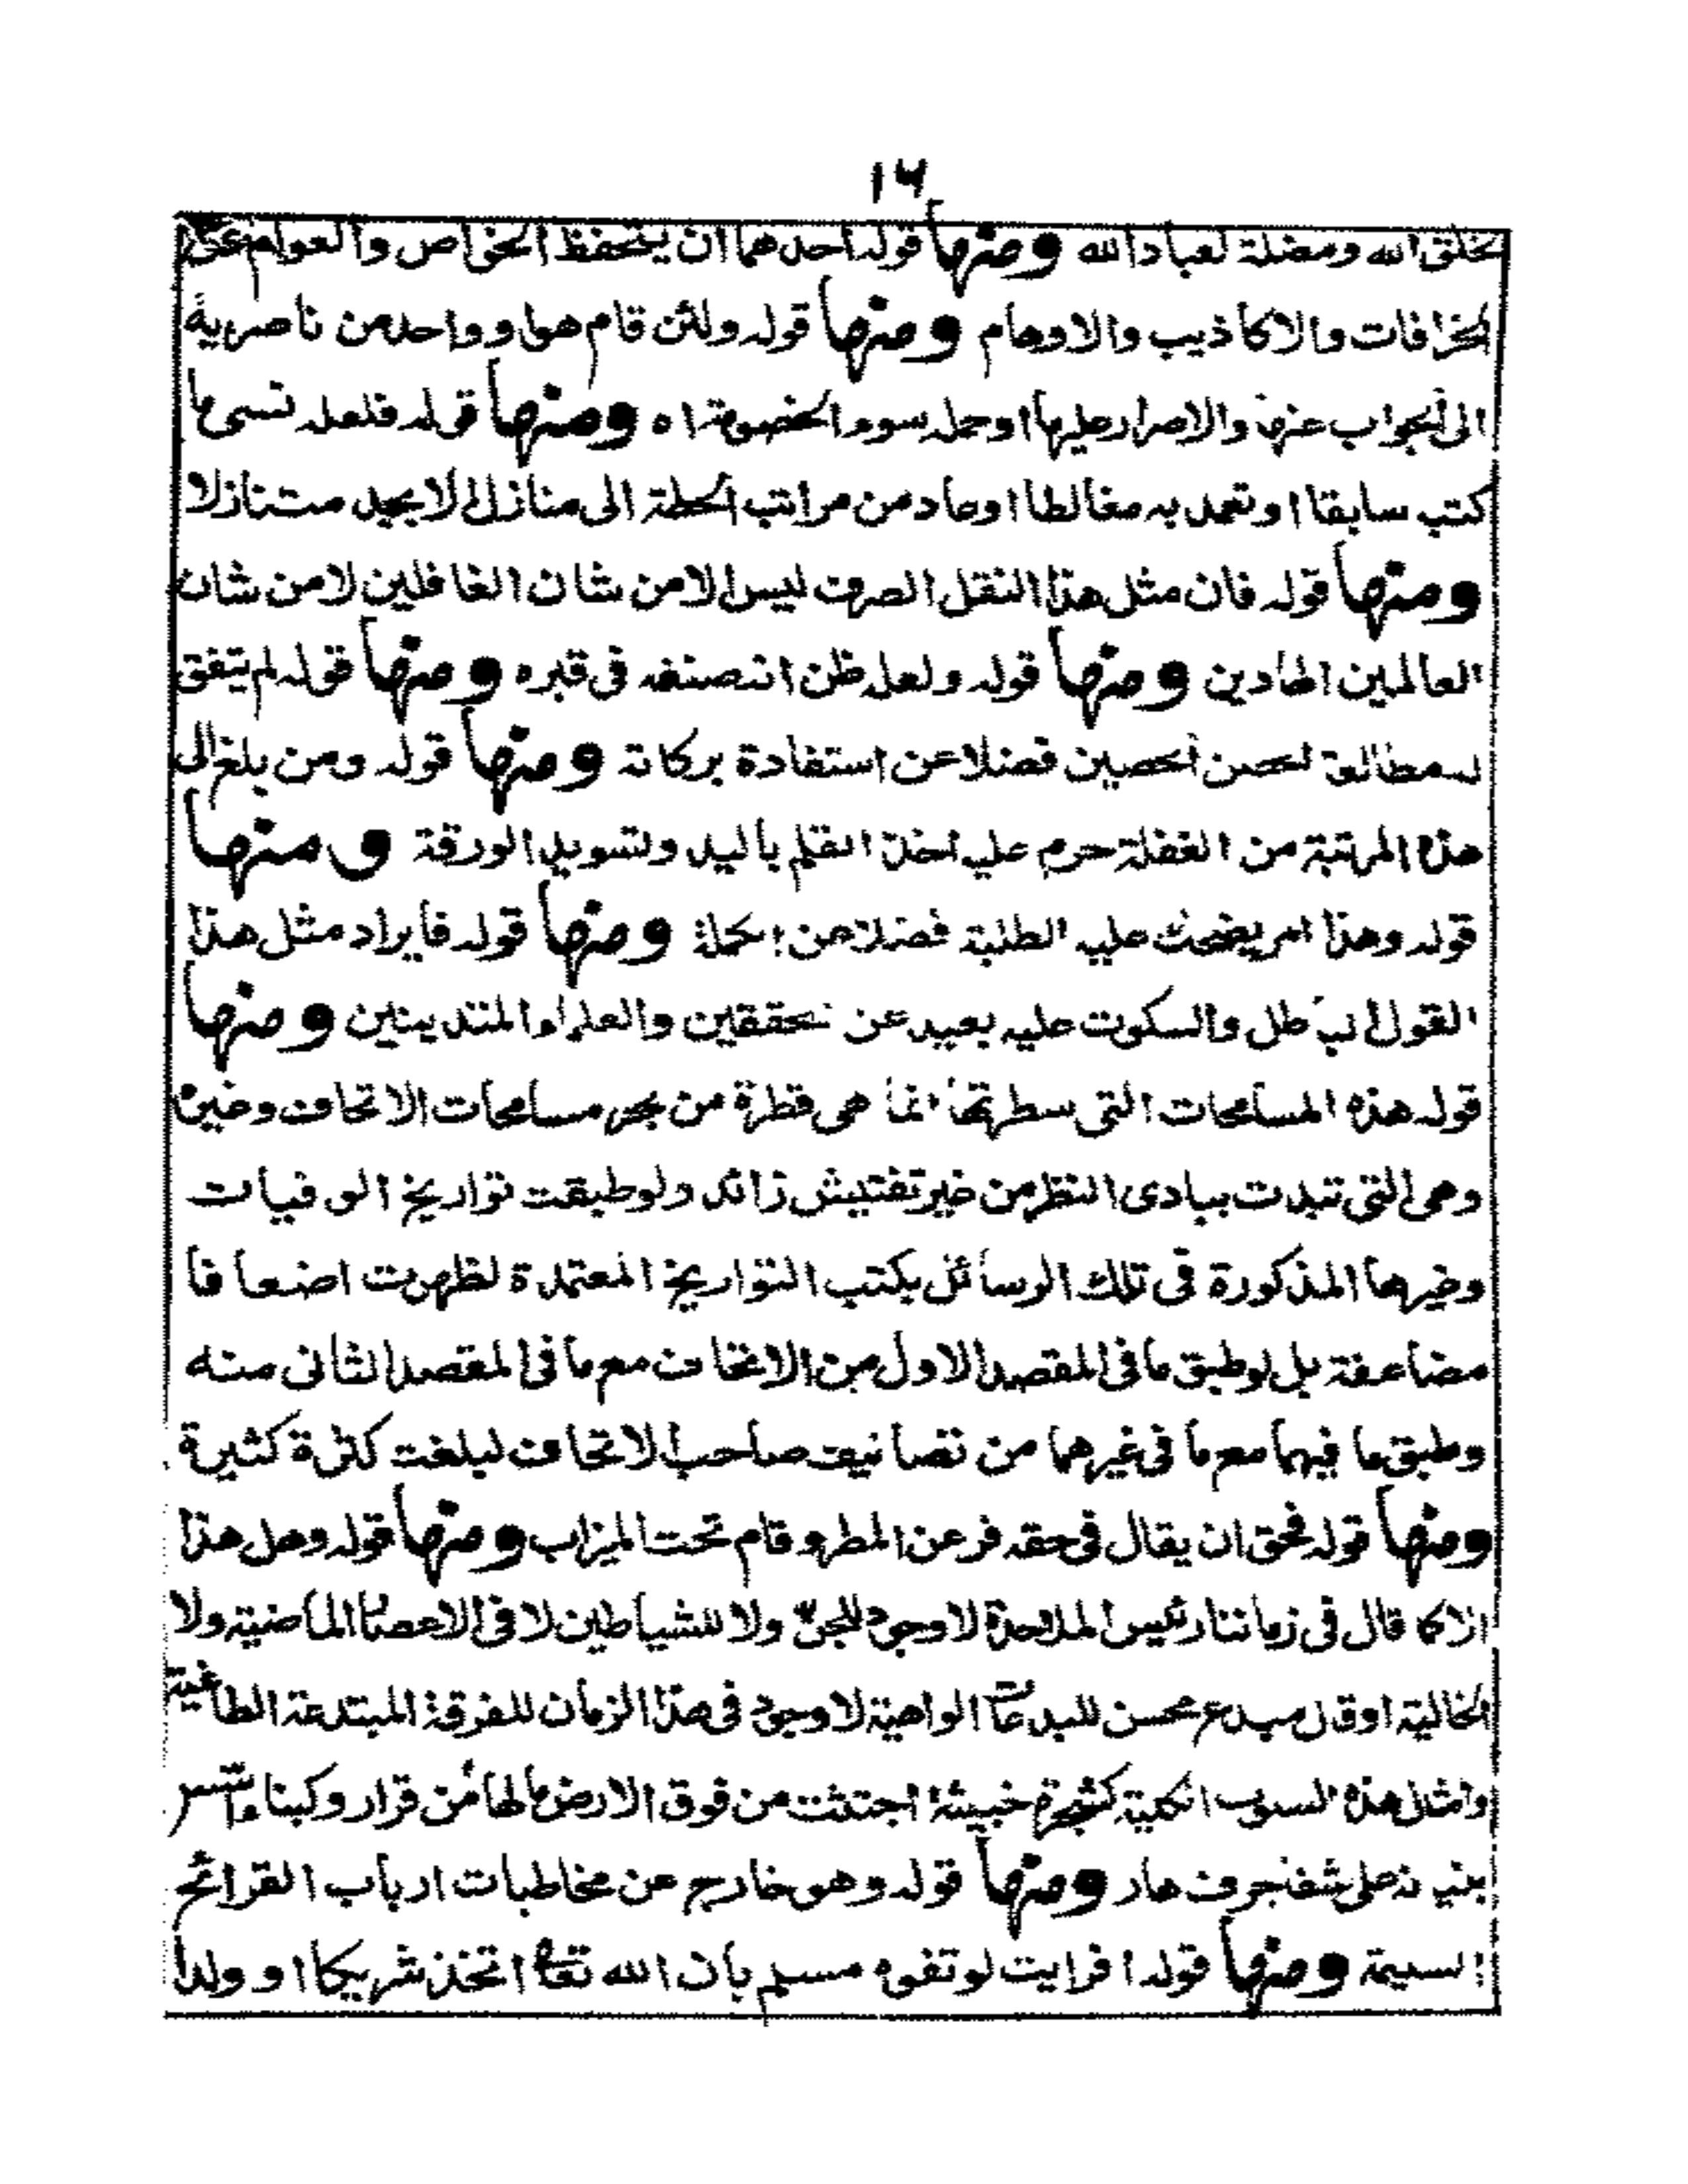 ١٦
لخلق الله ومضلة لعباد الله ومنها قوله احدهما ان يتحفظ الخواص والعوام عن
الخرافات والاكاذيب والاوهام ومنها قوله ولئن قام هو او واحد من ناصريه
الى الجواب عنها والاصرار عليها او حمله سوء الخصومة اه ومنها قوله فلعله نسى ما
كتب سابقا او تعمد به مغالطا او عاد من مراتب الحطة الى منازل لا يجد متنازلا
ومنها قوله فان مثل هذا النقل الصرف ليس الا من شان الغافلين لا من شان
العالمين الهادين ومنها قوله ولعله ظن انه صنفه فى قبره ومنها قوله لم يتفق
له مطالعة الحصن الحصين فضلا عن استفادة بركاته ومنها قوله ومن بلغ الى
هذه المرتبة من الغفلة حرم عليه اخذ القلم باليد ولتسويد الورقة ومنها
قوله وهذا امر يضحك عليه الطلبة فضلا عن الكملة ومنها قوله فايراد مثل هذا
القول الباطل والسكوت عليه بعيد عن المحققين والعلماء المتدينين ومنها
قوله هذه المسامحات التى سطرتها انما هى قطرة من بحر مسامحات الاتحاف وغيره
وهى التى تبدت ببادى النظر من غير تفتيش زائد ولو طبقت تواريخ الوفيات
وغيرها المذكورة فى تلك الرسائل بكتب التواريخ المعتمدة لظهرت اضعافا
مضاعفة بل لو طبق ما فى المقصد الاول من الاتحاف مع ما فى المقصد الثانى منه
وطبق ما فيهما مع ما فى غيرهما من تصانيف صاحب الاتحاف لبلغت كثرة كثيرة
ومنها قوله فحق ان يقال فى حقه فر عن المطر وقام تحت الميزاب ومنها قوله وهل هذا
الا كما قال فى زماننا رئيس الملاحدة لا وجود للجن ولا للشياطين لا فى الاعصار الماضية ولا
الخالية او قال مبدع محسن للبدعات الواهية لا وجود فى هذا الزمان للفرقة المبتدعة الطاغية
وامثال هذه السوالب الكلية كشجرة خبيثة اجتثت من فوق الارض ما لها من قرار وكبناء اسس
بنيانه على شفا جرف هار ومنها قوله وهو خارج عن مخاطبات ارباب القرائح
السليمة ومنها قوله افرايت لو تفوه مسلم بان الله تعالى اتخذ شريكا او ولدا